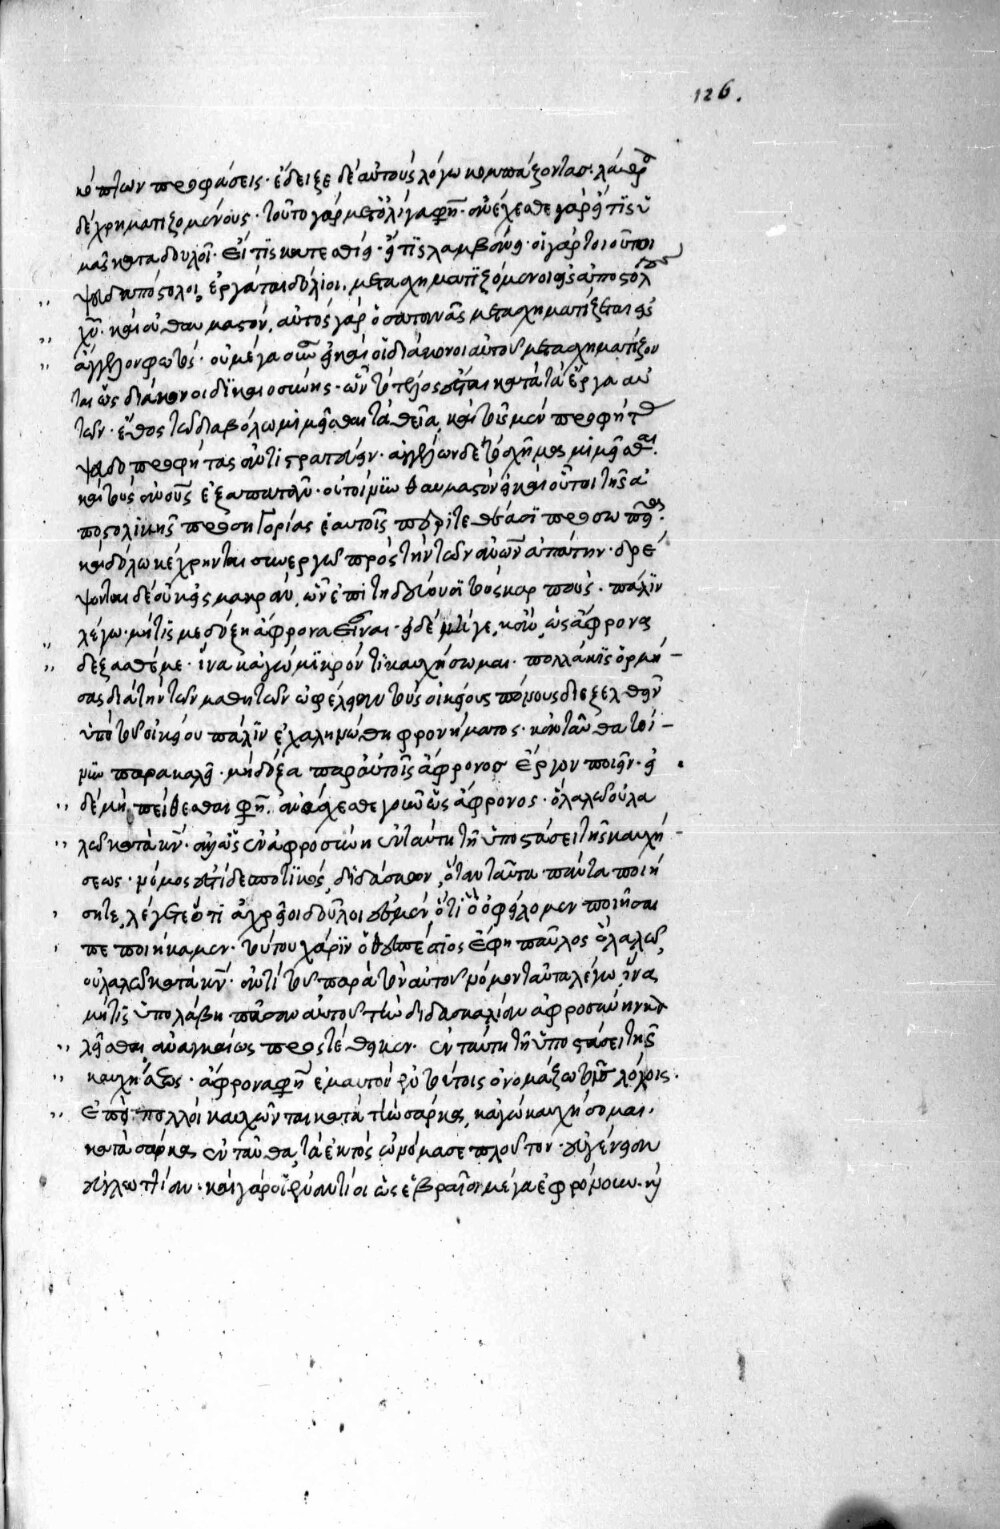 126.
κόπτων προφάσεις· ἔδειξε δὲ αὐτοὺς λόγω κομπάζοντας· λάθρα
δὲ χρηματιζομένους· τοῦτο γὰρ μετ' ὀλίγα φησὶν· ἀνέχεσθε γὰρ εἴ τις ὑ
μᾶς καταδουλοῖ· εἴ τις κατεσθίει· εἴ τις λαμβάνει· οἱ γὰρ τοιοῦτοι
ψευδαπόστολοι, ἐργάται δόλιοι, μετασχηματιζόμενοι εἰς ἀποστόλους
χῦ· καὶ οὐ θαυμαστόν, αὐτὸς γὰρ ὁ σατανᾶς μετασχηματίζεται εἰς
ἄγγελον φωτός· οὐ μέγα οὖν εἰ καὶ οἱ διάκονοι αὐτοῦ μετασχηματίζον
ται ὡς διάκονοι δικαιοσύνης· ὧν τὸ τέλος ἔσται κατὰ τὰ ἔργα αὐ
τῶν· ἔθος τῶ διαβόλω μιμεῖσθαι τὰ θεῖα, καὶ τοῖς μὲν προφήταις
ψευδοπροφήτας ἀντιστρατεύειν· ἀγγέλων δὲ τὸ σχῆμα μιμεῖσθαι·
καὶ τοὺς ἀνους ἐξαπατᾶν· οὐ τοίνυν θαυμαστὸν εἰ καὶ οὗτοι τῆς ἀ
ποστολικῆς προσηγορίας ἑαυτοῖς περιτεθείκασι προσωπεῖον·
καὶ δόλω κέχρηνται συνεργῶ πρὸς τὴν τῶν ἀνων ἀπάτην· δρέ
ψονται δὲ οὐκ εἰς μακρὰν, ὧν ἐπιτηδεύουσι τοὺς καρπούς· πάλιν
λέγω· μή τις με δόξη ἄφρονα εἶναι· εἰ δὲ μήγε, κἂν ὡς ἄφρονα
δέξασθέ με· ἵνα κἀγὼ μικρόν τι καυχήσωμαι· πολλάκις ὁρμή
σας διὰ τὴν τῶν μαθητῶν ὠφέλειαν τοὺς οἰκείους πόνους διεξελθεῖν
ὑπὸ τοῦ οἰκείου πάλιν ἐχαλινώθη φρονήματος· κἀνταῦθα τοί
νυν παρακαλεῖ· μὴ δόξαι παρ' αὐτοῖς ἄφρονος ἔργον ποιεῖν· εἰ
δὲ μὴ πείθεσθαι φησὶν ἀνάσχεσθε γοῦν ὡς ἄφρονος· ὃ λαλῶ οὐ λα
λῶ κατὰ κν· ἀλλ' ὡς ἐν ἀφροσύνη ἐν ταύτη τῆ ὑποστάσει τῆς καυχή
σεως· νόμος ἐστὶ δεσποτικὸς διδάσκων, ὅταν ταῦτα πάντα ποιή
σητε, λέγετε ὅτι ἀχρεῖοι δοῦλοι ἐσμέν, ὅτι ὃ ὀφείλομεν ποιῆσαι
πεποιήκαμεν· τούτου χάριν ὁ θεσπέσιος ἔφη παῦλος ὃ λαλῶ,
οὐ λαλῶ κατὰ κν· ἀντὶ τοῦ παρὰ τὸν αὐτοῦ νόμον ταῦτα λέγω, ἵνα
μή τις ὑπολάβη πᾶσαν αὐτοῦ τὴν διδασκαλίαν ἀφροσύνην κα
λεῖσθαι, ἀναγκαίως προστέθεικεν· ἐν ταύτη τῆ ὑποστάσει τῆς
καυχήσεως· ἄφρονα φησὶν ἐμαυτὸν ἐν τούτοις ὀνομάζω τοῖς λόγοις·
ἐπεὶ πολλοὶ καυχῶνται κατὰ τὴν σάρκα, κἀγὼ καυχήσομαι·
κατὰ σάρκα ἐνταῦθα, τὰ ἐκτὸς ὠνόμασε πλοῦτον· εὐγένειαν
εὐγλωττίαν· καὶ γὰρ οἱ ἐναντίοι ὡς ἑβραῖοι μέγα ἐφρόνουν· καὶ